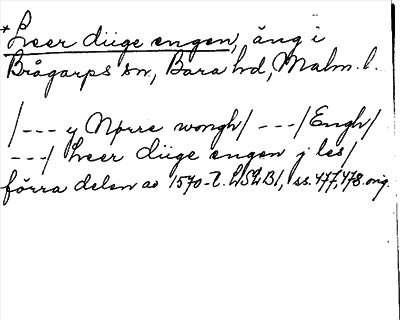 *Leer diige engen, äng i
Brågarps sn, Bara hd, Malm. l.
/--- y Nørre wongh/ ---/Engh/
---/ Leer diige engen j les/
förra delen av 1570-t. LSLB1, ss. 477, 478. orig.